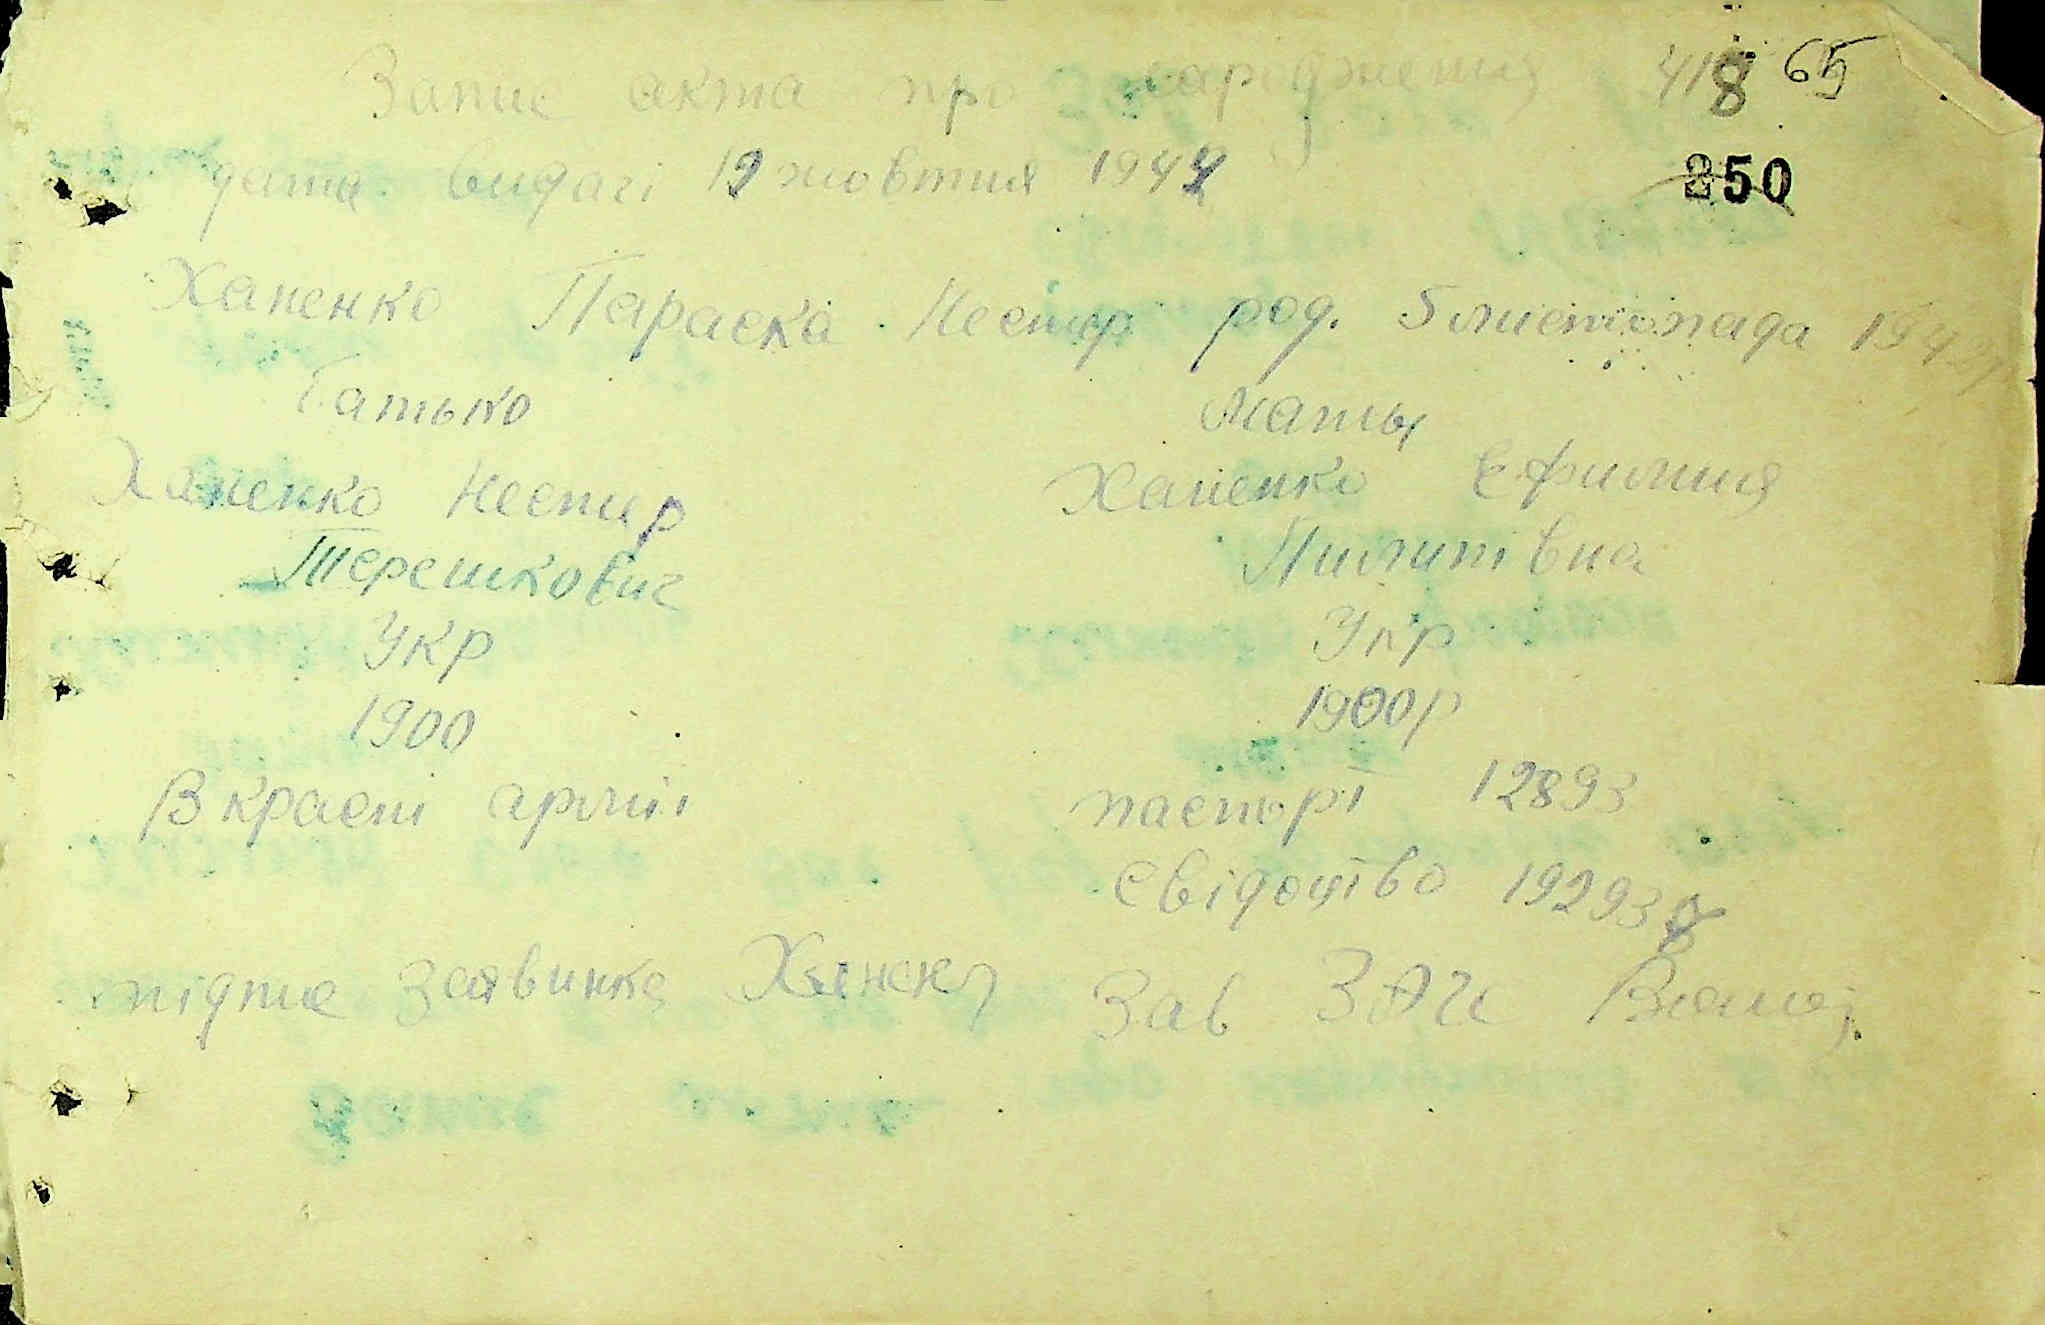 Запис акта про народження 418 65
дата видачі 19 жовтня 1944
250
Ханенко Параска Нестір род. 5 листопада 1942
Батько Маты
Ханенко Нестир Ханенко Єфимия
Терешкович Пилипівна
Укр Укр
1900 1900р
В красні армії паспорт 12893
Свідоцтво 19293
підпис заявника Зав ЗАГС